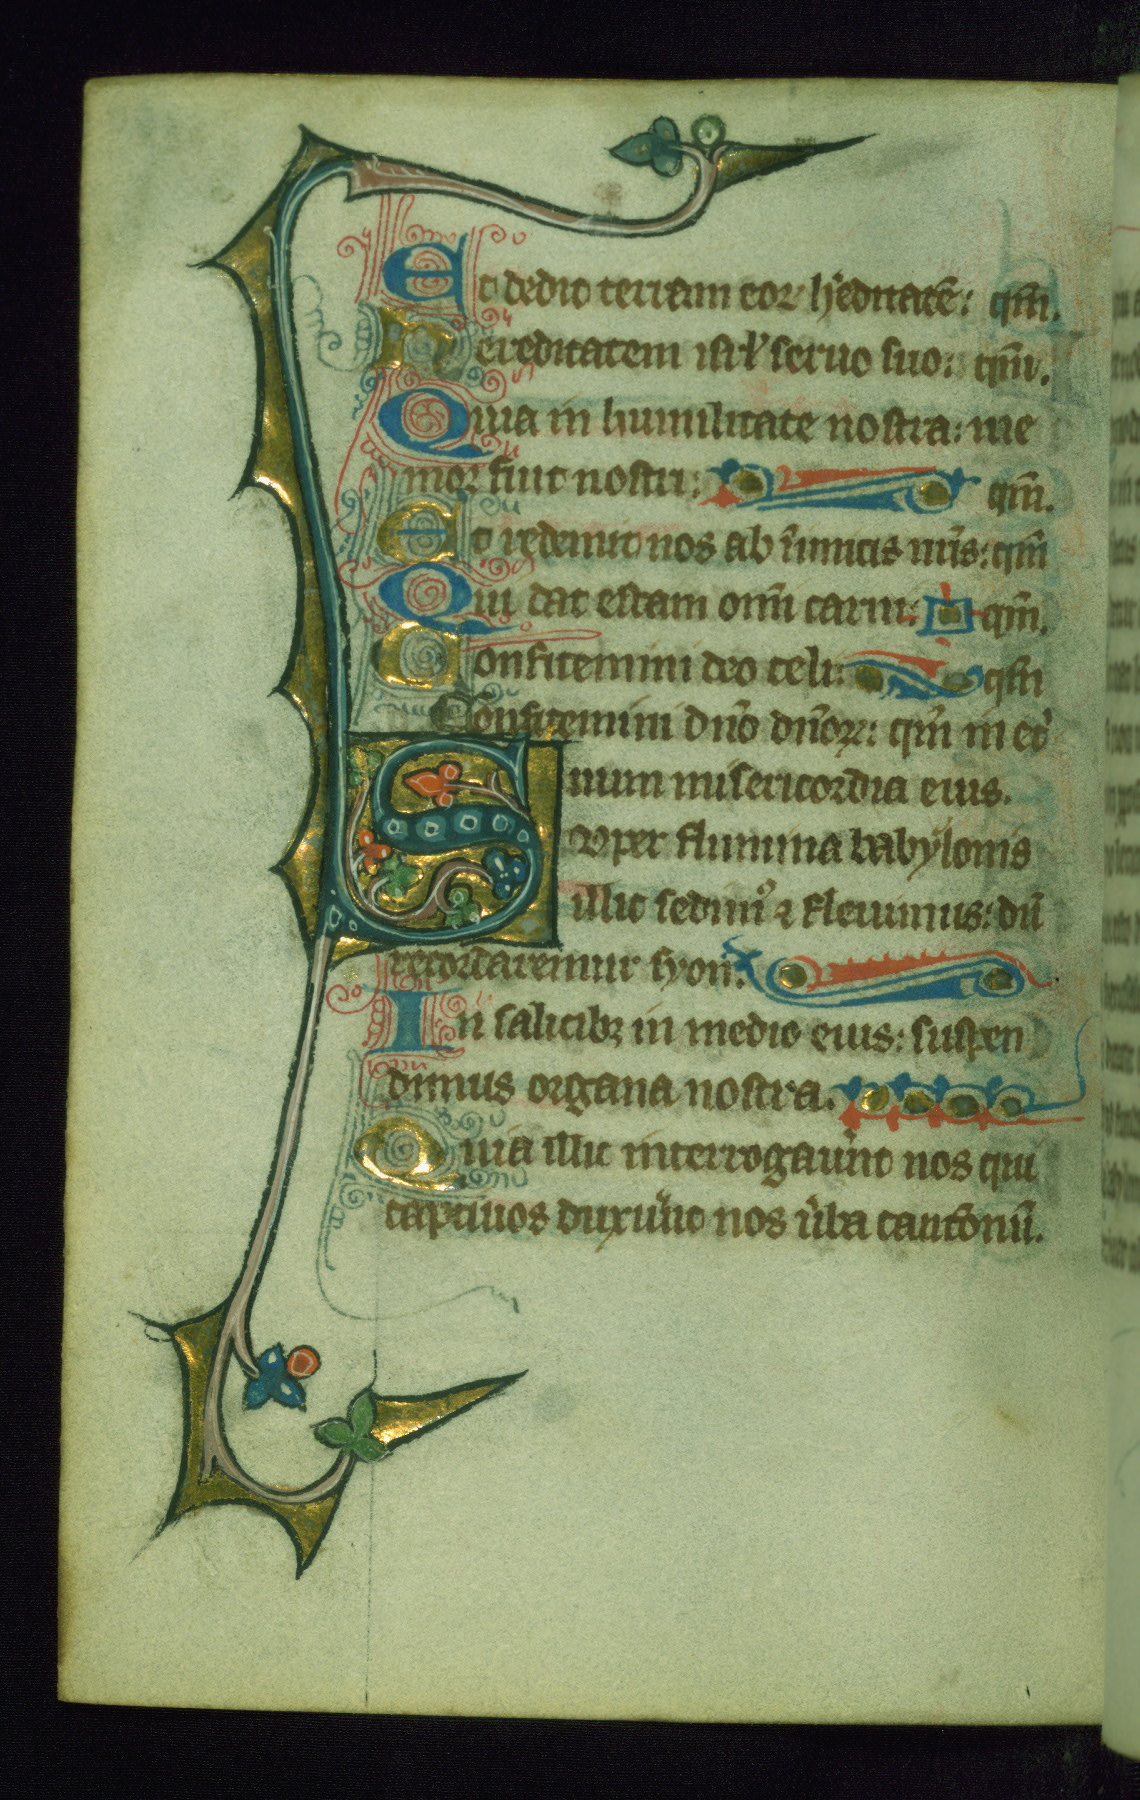 Et dedit terram eor h'editatē: qm̄.
Hereditatem isrl' seruo suo: qm̄.
Quia in humilitate nostra: me
mor fuit nostri: qm̄.
Et redemit nos ab inimicis nr̄is: qm̄
Qui dat escam omī carni: qm̄.
Confitemini deo celi: qm̄
Confitemini dn̄o dn̄oꝝ: qm̄ in et'
num misericordia eius.
Super flumina babylonis
illic sedim' ⁊ fleuimus: dū
recordaremur syon.
In salicibꝫ in medio eius: suspen
dimus organa nostra.
Quia illic interrogauer̄t nos qui
captiuos duxer̄t nos u'ba cantionū.